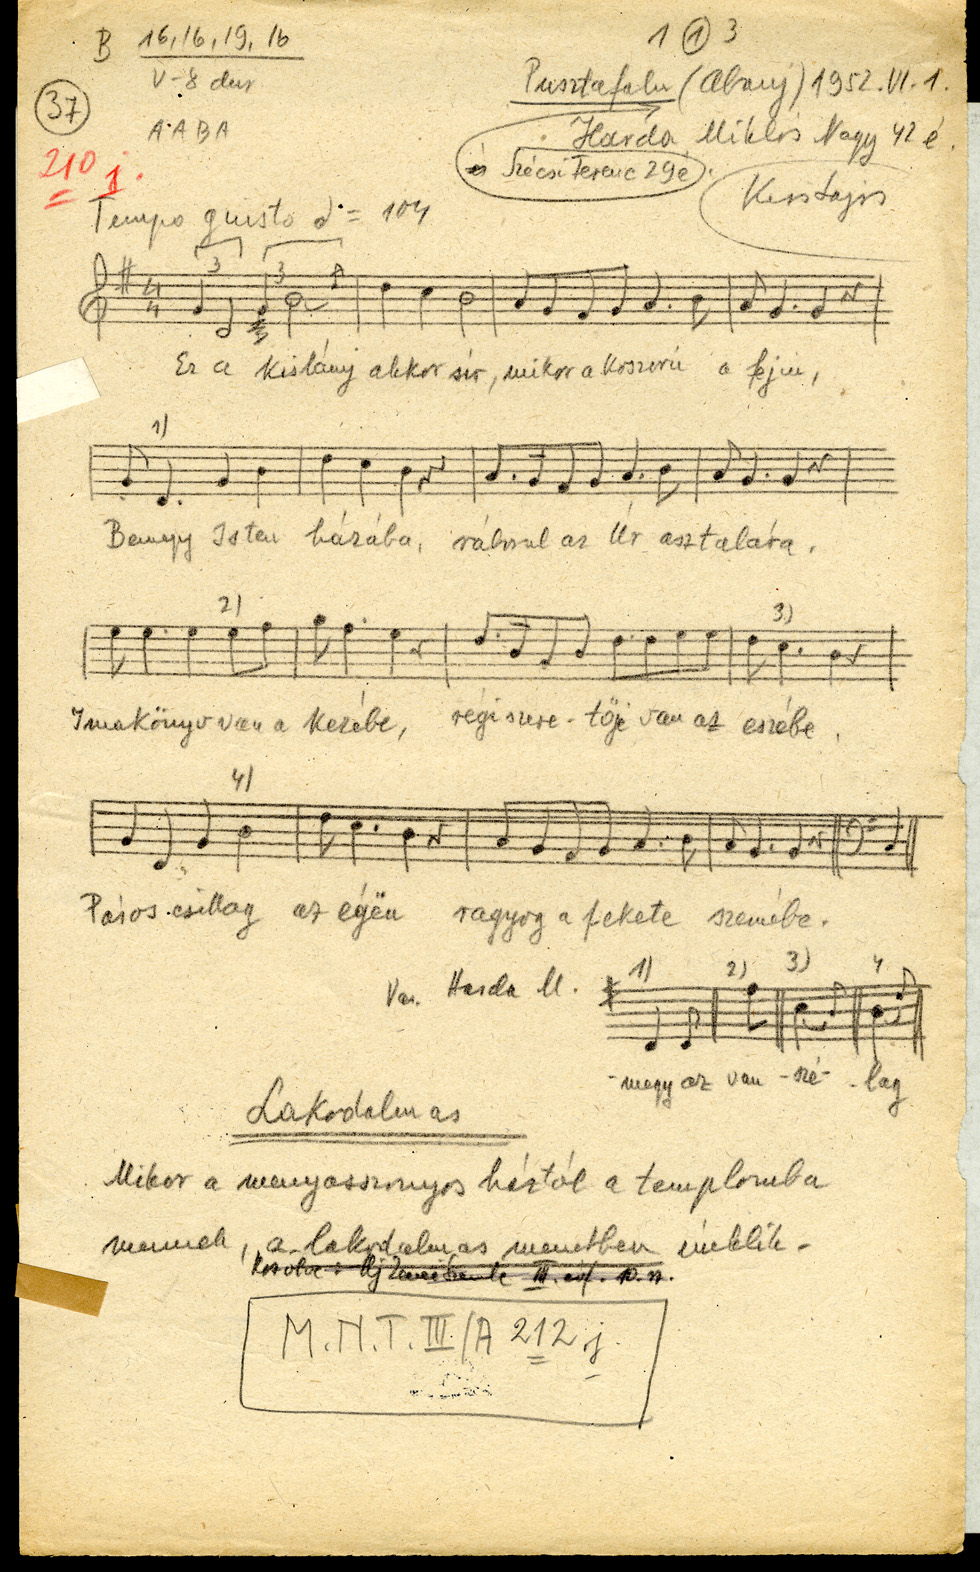 B 16, 16, 19, 16
1 1 3
V-8 dur
37
A A B A
210 j.
Pusztafalu (Abauj) 1952. VI. 1.
Harda Miklós Nagy 42 é.
és Szécsi Ferenc 29 é.
Kiss Lajos
Tempo giusto = 104
3 3
4
4
Ez a kislány akkor sír, mikor a koszorú a fején,
1)
Bemegy Isten házába, ráborul az Úr asztalára.
2) 3)
Imakönyv van a kezébe, régi szere-tője van az eszébe.
4)
Páros csillag az égën ragyog a fekete szemébe.
Var. Harda M. 1) 2) 3) 4
-megy az van -szé- -lag
Lakodalmas
Mikor a menyasszonyos háztól a templomba
mennek, a lakodalmas menetben éneklik.
III. évf. 10. sz.
M.N.T. III/A 212 j.